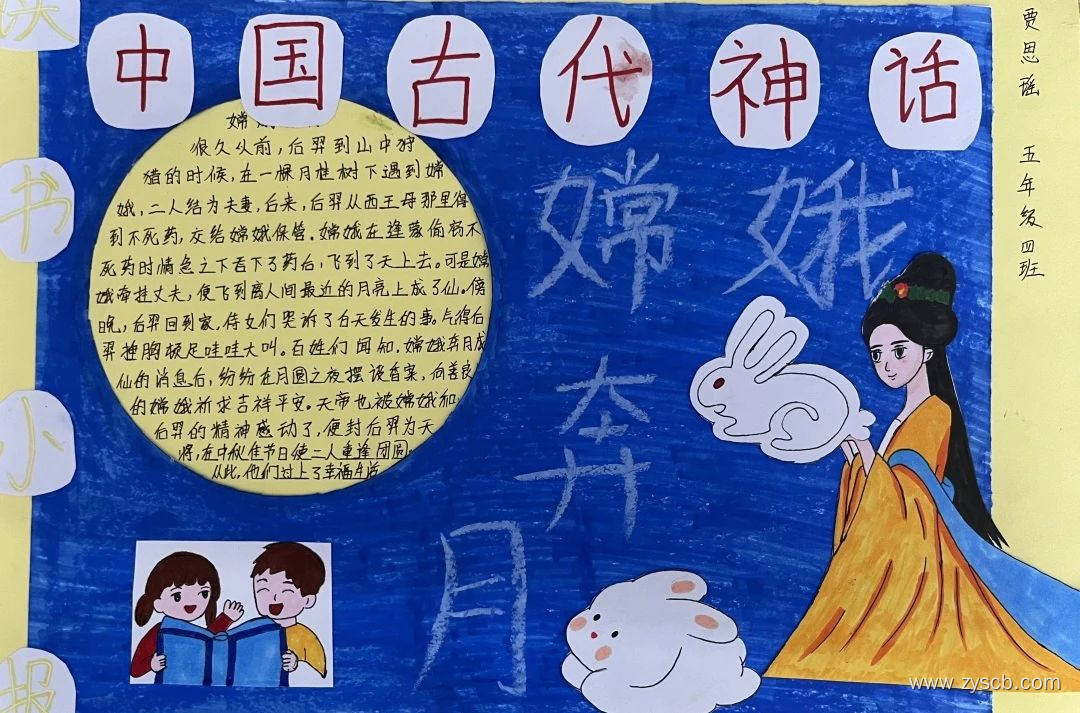 中国古代神话
读
书
小
报
贾思瑶 五年级四班
嫦
很久以前，后羿到山中狩
猎的时候，在一棵月桂树下遇到嫦
娥，二人结为夫妻，后来，后羿从西王母那里得
到不死药，交给嫦娥保管。嫦娥在逢蒙偷窃不
死药时情急之下吞下了药后，飞到了天上去。可是嫦
娥牵挂丈夫，便飞到离人间最近的月亮上成了仙。傍
晚，后羿回到家，侍女们哭诉了白天发生的事。气得后
羿捶胸顿足哇哇大叫。百姓们闻知，嫦娥奔月成
仙的消息后，纷纷在月圆之夜摆设香案，向善良
的嫦娥祈求吉祥平安。天帝也被嫦娥和
后羿的精神感动了，便封后羿为天
将，在中秋佳节日使二人重逢团圆。
从此，他们过上了幸福生活
嫦娥
奔
月
www.zyscb.com